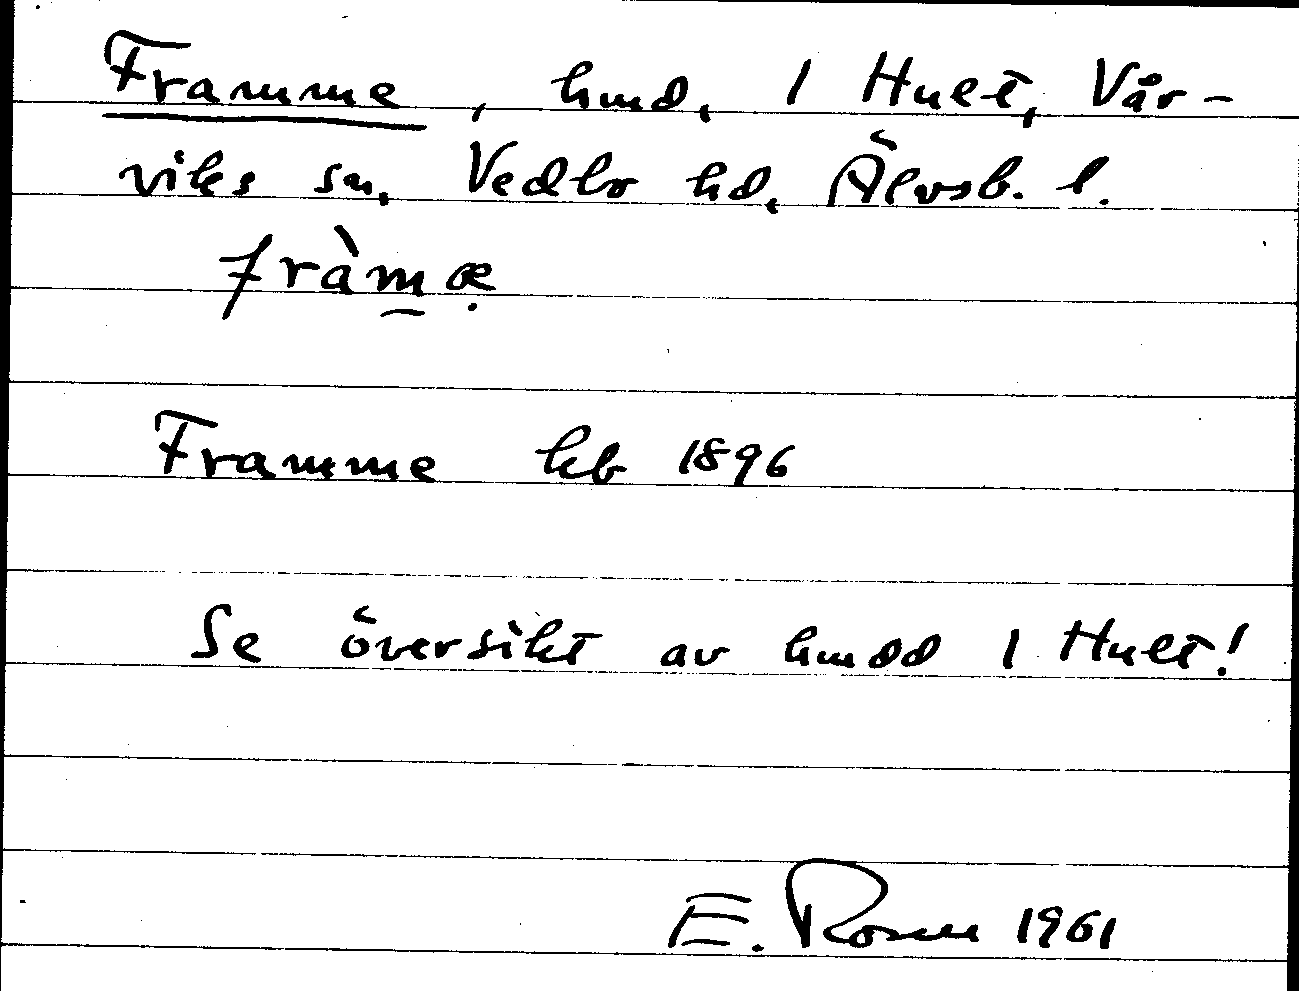 Framme, hmd, 1 Hult, Vår-
viks sn, Vedbo hd, Älvsb. l.
fràm̲æ̣
Framme kb 1896
Se översikt av hmdd 1 Hult!
E. Rosen 1961